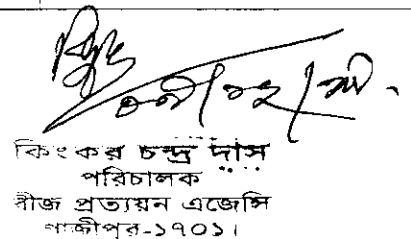 কিংকর চন্দ্র দাস
পরিচালক
বীজ প্রত্যয়ন এজেন্সি
গাজীপুর-১৭০১।